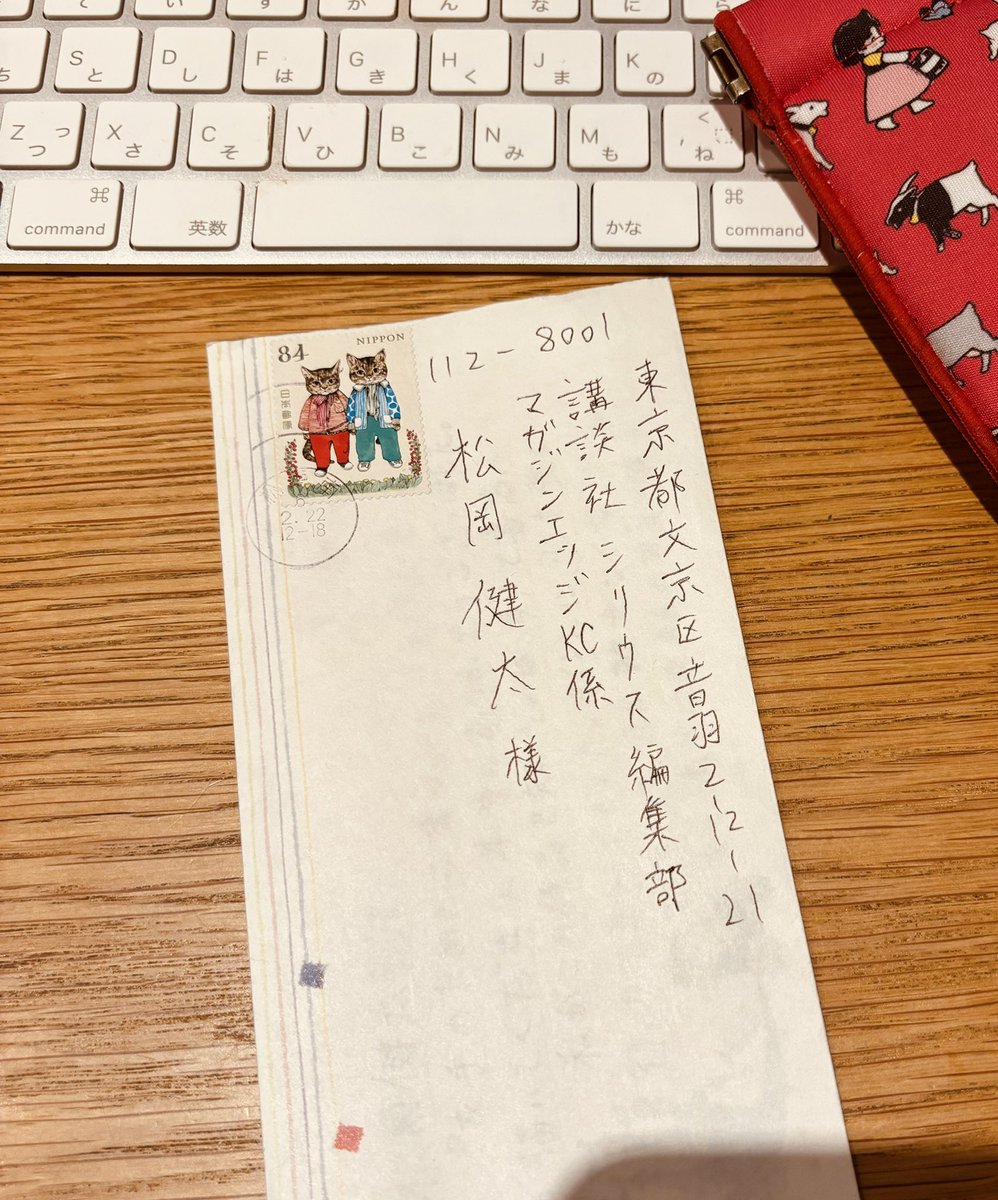 て い す か ん な に ら
ち
S と
D し
F は
G き
H く
J ま
K の
Z つ っ
X さ
C そ
V ひ
B こ
N み
M も
, ね <
⌘ command
英数
かな
⌘ command
84
NIPPON
日本郵便
2.22
12-18
112-8001
東京都文京区音羽2-12-21
講談社 シリウス編集部
マガジンエッジKC係
松岡健太様